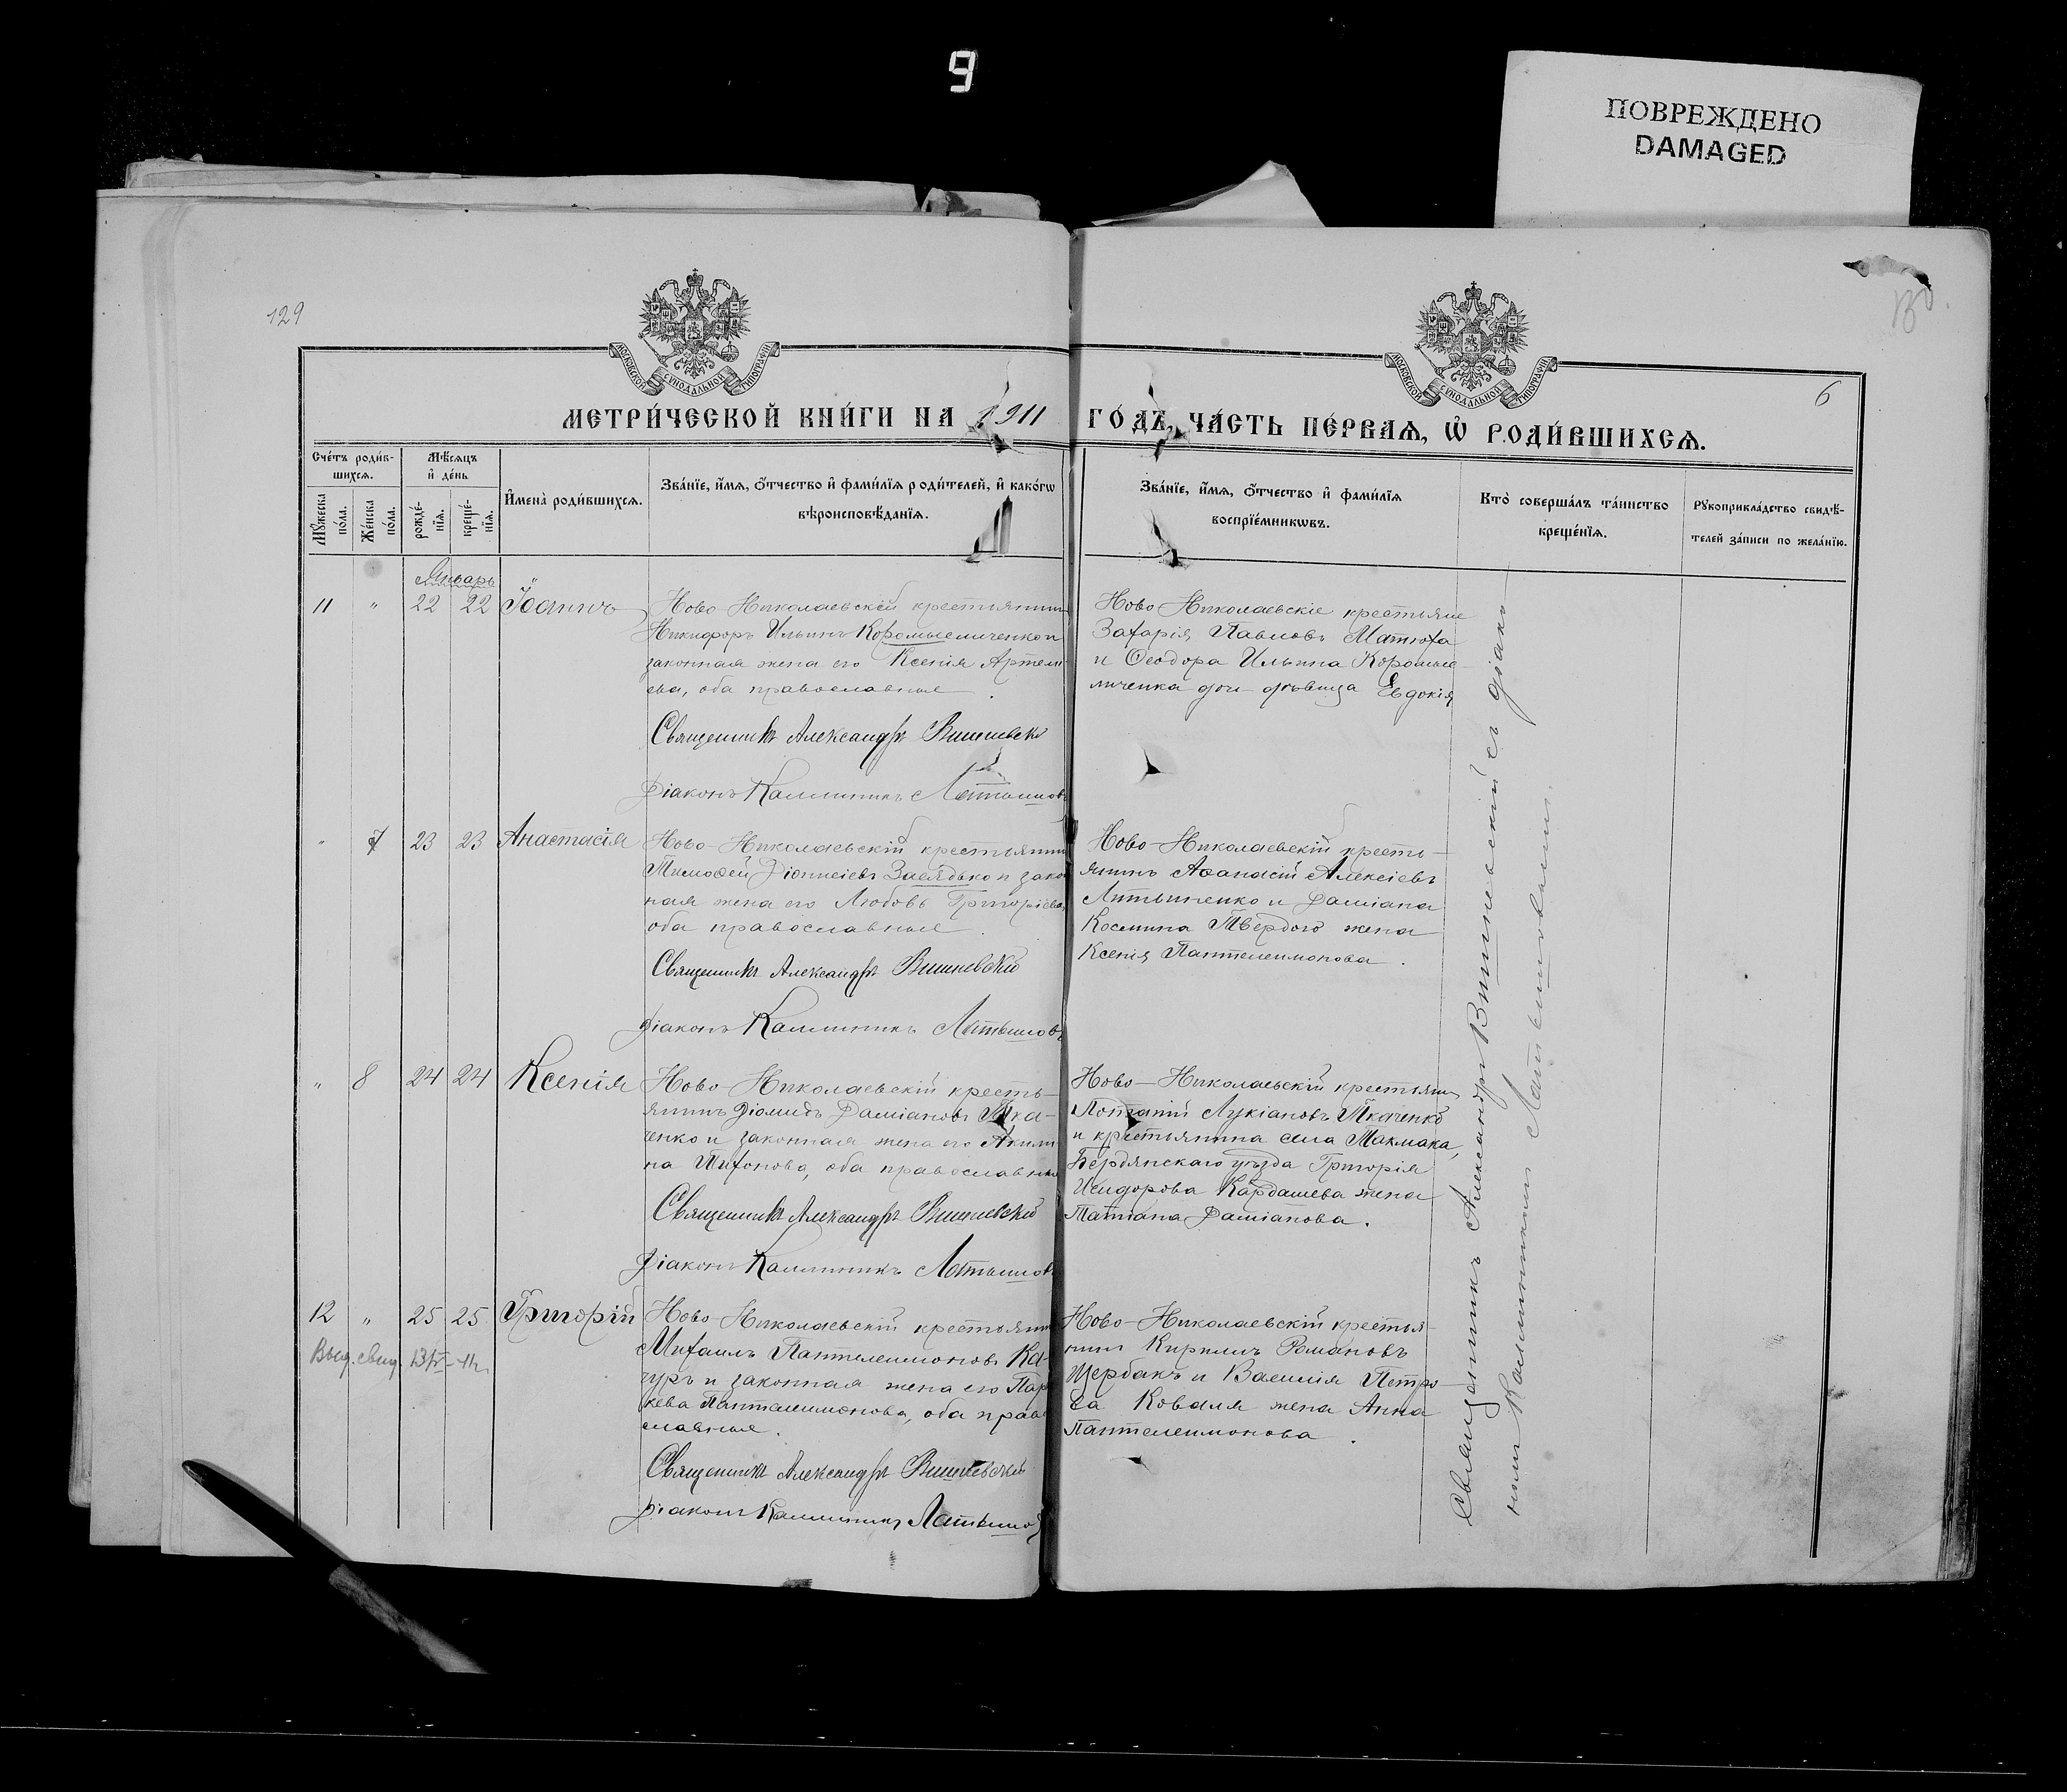 9
ПОВРЕЖДЕНО
DAMAGED
129
130
МОСКОВСКОЙ СУНОДАЛЬНОЙ ТИПОГРАФІИ
МОСКОВСКОЙ СУНОДАЛЬНОЙ ТИПОГРАФІИ
6
МЕТРИ́ЧЕСКОЙ КНИ́ГИ НА 1911 ГО́ДЪ, ЧА́СТЬ ПЕ́РВАЯ, Ѡ РОДИ́ВШИХСЯ.
Сче́тъ роди́в-
шихся.
Мѣ́сяцъ
и҆ де́нь
Мꙋ́жеска
по́ла.
Же́нска
по́ла.
рожде́-
нїя.
креще́-
нїя.
И҆мена̀ роди́вшихся.
Зва́нїе, и҆́мя, ѻ҆́тчество и҆ фами́лїя роди́телей, и҆ како́гѡ
вѣроисповѣ́данїя.
Зва́нїе, и҆́мя, ѻ҆́тчество и҆ фами́лїя
воспрїе́мникѡвъ.
Кто̀ соверша́лъ та́инство
креще́нїя.
Рꙋкоприкла́дство свидѣ́-
телей за́писи по жела́нїю.
Январь
11 " 22 22 Іоаннъ
Ново-Николаевскій крестьянин
Никифоръ Ильинъ Коромысличенко и
законная жена его Ксенія Артемі-
ева, оба православные.
Священникъ Александръ Вишневскій
Діаконъ Каллиникъ Латышовъ
Ново-Николаевскіе крестьяне
Захарія Павловъ Матюха
и Ѳеодора Ильина Коромыс-
личенка дочь дѣвица Евдокія
" 7 23 23 Анастасія
Ново-Николаевскій крестьянин
Тимоѳей Діонисіевъ Заѣлдько и закон
ная жена его Любовь Григоріева,
оба православные.
Священникъ Александръ Вишневскій
Діаконъ Каллиникъ Латышовъ
Ново-Николаевскій кресть-
янинъ Аѳанасій Алексіевъ
Литвиненко и Даміана
Космина Твердого жена
Ксенія Пантелеимонова.
" 8 24 24 Ксенія
Ново-Николаевскій кресть-
янинъ Діомидъ Даміановъ Тка-
ченко и законная жена его Акили
на Тихонова, оба православные
Священникъ Александръ Вишневскій
Діаконъ Каллиникъ Латышовъ
Ново-Николаевскій крестьянин
Потапій Лукіановъ Ткаченко
и крестьянина села Такмака,
Бердянскаго уѣзда Григорія
Исидорова Кардашева жена
Татіана Даміанова.
12 " 25 25 Григорій
Выд. свид.
Ново-Николаевскій крестьянин
Михаилъ Пантелеимоновъ Ка-
чуръ и законная жена его Пара
кева Пантелеимонова, оба право
славные.
Священникъ Александръ Вишневскій
Діаконъ Каллиникъ Латышовъ
Ново-Николаевскій крестья-
нинъ Кириллъ Романовъ
Щербакъ и Василія Петро-
ва Коваля жена Анна
Пантелеимонова.
Священникъ Александръ Вишневскій съ діако-
номъ Каллиникомъ Латышовымъ.